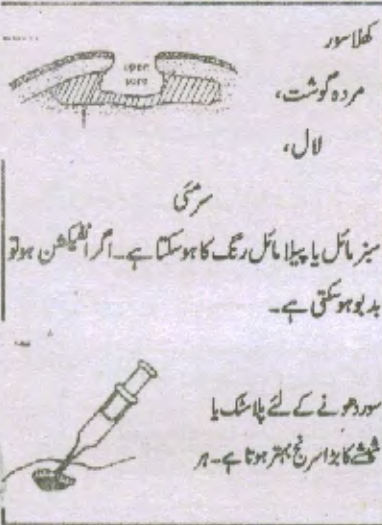 کھلا سور
open
sore
مردہ گوشت،
لال،
سرمئی
سبز مائل یا پیلا مائل رنگ کا ہو سکتا ہے۔ اگر انفیکشن ہو تو
بدبو ہو سکتی ہے۔
سور دھونے کے لئے پلاسٹک یا
شیشے کا بڑا سرنج بہتر ہوتا ہے۔ ہر